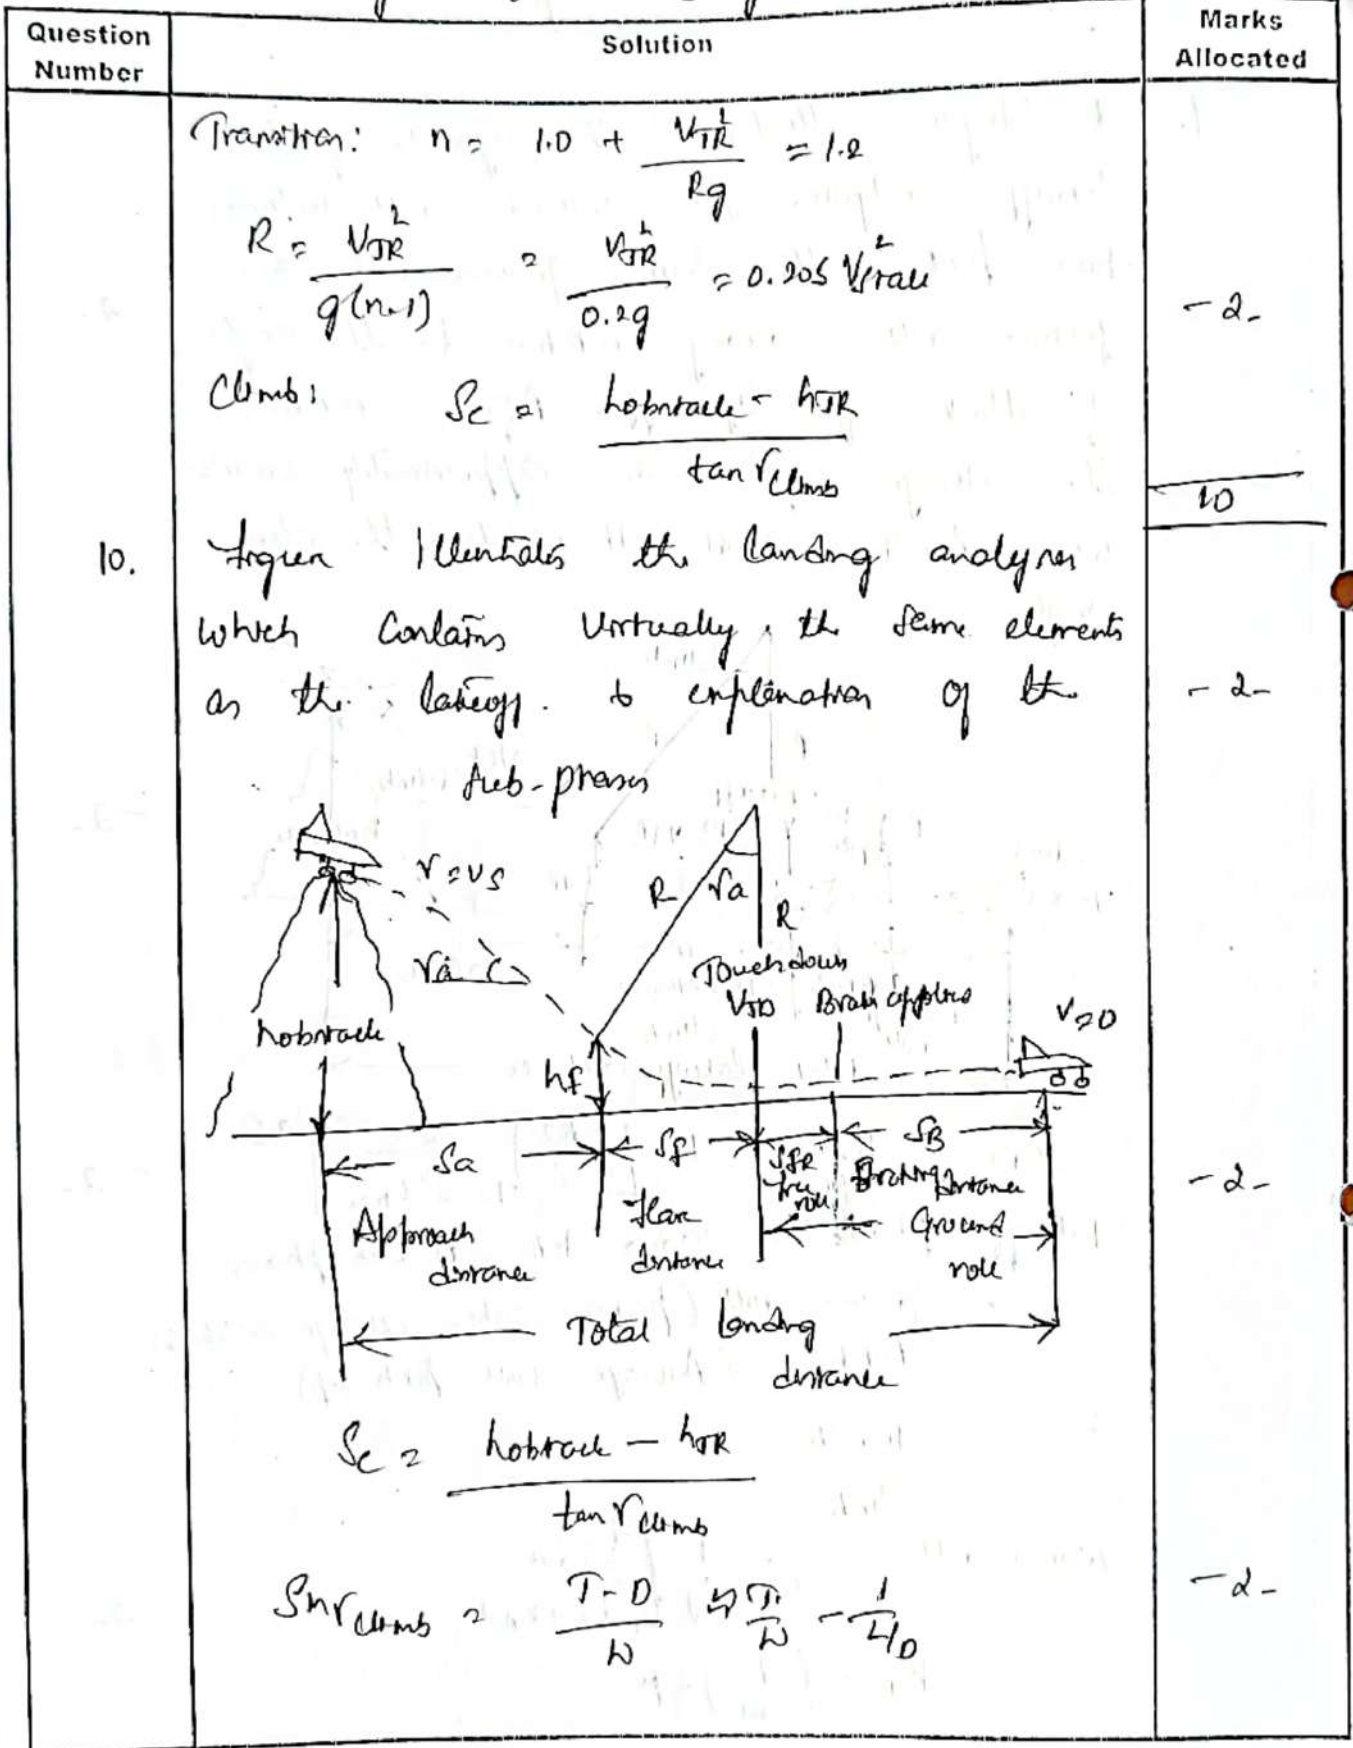 Question Number
Solution
Marks Allocated
Transition: n = 1.0 + V_TR² / Rg = 1.2
R = V_TR² / g(n-1) = V_TR² / 0.2g = 0.205 V²stall
- 2 -
Climb: Sc = hobstacle - hTR / tan γ climb
10
10. Figure Illustrates the landing analysis
which contains virtually the same elements
as the takeoff. & explanation of the
- 2 -
sub-phases
V = VS
R γa
R
γa
Touchdown
VTD Brake applied
V=0
hobstacle
hf
Sa Sf SFR SB
free roll Braking distance
Approach distance
Flare distance
Ground roll
- 2 -
Total landing distance
Sc = hobstacle - hTR / tan γ climb
Sin γ climb = T - D / W T/W - 1 / L/D
- 2 -